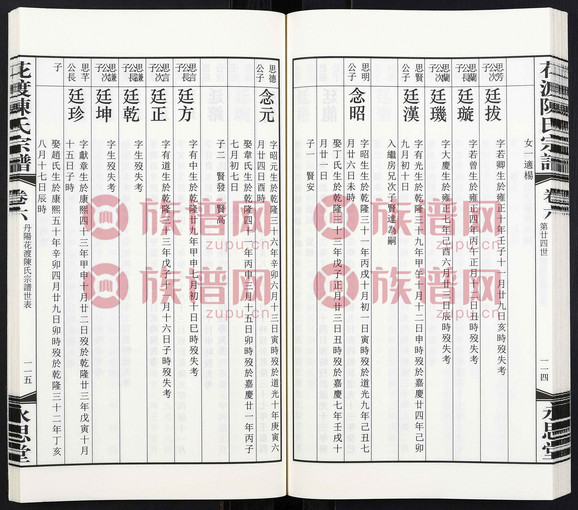 花渡陳氏宗譜
卷六
第廿四世
一一四
永思堂
女一適楊
思勞公次子
廷拔
字若卿生於雍正十年壬子十一月廿九日亥時歿失考
思蘭公長子
廷璇
字若曾生於雍正四年丙午正月十三日丑時歿失考
思蘭公次子
廷璣
字大慶生於雍正七年己酉六月廿一日辰時歿失考
思賢公子
廷漢
字有光生於乾隆三十九年甲午十一月十二日申時歿於嘉慶廿四年己卯
九月初十日
入繼房兄次子賢達為嗣
思明公子
念昭
字昭生於乾隆三十一年丙戌十月初一日寅時歿於道光九年己丑七
月廿六日未時
娶丁氏生於乾隆三十三年戊子正月廿三日時歿於嘉慶七年壬戌十
月廿一日
子一 賢安
思德公子
念元
字昭元生於乾隆三十六年辛卯六月十三日寅時歿於道光十年庚寅六
月廿四日酉時
娶韋氏生於乾隆四十一年丙申三月十五日卯時歿於嘉慶廿一年丙子
七月初七日
子二 賢發 賢高
思言公長子
廷方
字有中生於乾隆十九年甲戌七月初十日巳時歿失考
思言公次子
廷正
字有道生於乾隆三十三年戊子十一月十六日子時歿失考
思謙公長子
廷乾
字生歿失考
思謙公次子
廷坤
字生歿失考
思芊公長子
廷珍
字獻章生於康熙四十三年甲申十月廿二日歿於乾隆廿三年戊寅十月
十五日子時
娶趙氏生於康熙五十年辛卯四月廿九日卯時歿於乾隆三十二年丁亥
八月十七日辰時
花渡陳氏宗譜
卷六
丹陽花渡陳氏宗譜世表
一一五
永思堂
族谱网
zupu.cn
族谱网
zupu.cn
族谱网
zupu.cn
族谱网
zupu.cn